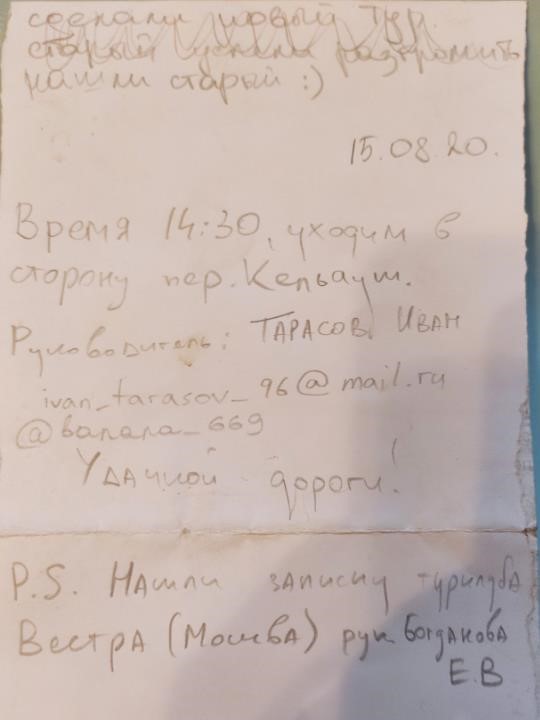 сделали новый тур.
старый успели разгромить
нашли старый :)
15.08.20.
Время 14:30, уходим в
сторону пер. Кельауш.
Руководитель: ТАРАСОВ ИВАН
ivan_tarasov_96@mail.ru
@banana_669
Удачной дороги!
P.S. Нашли записку турклуба
Вестра (Москва) рук. Богданова
Е.В